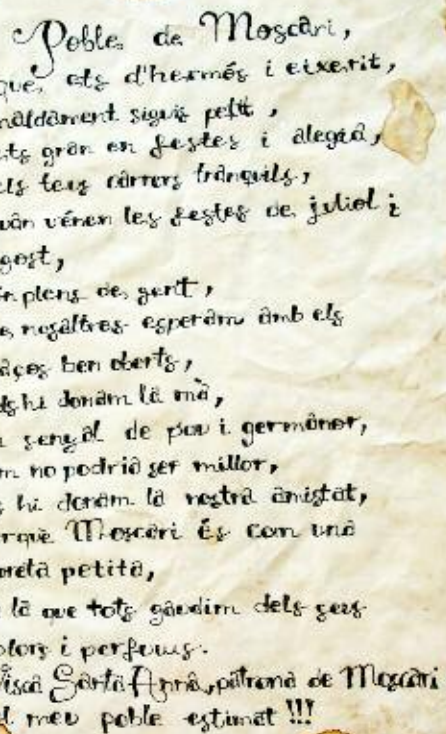 Poble de Moscari,
que, ets d'hermós i eixerit,
maldament siguis petit,
ets gran en festes i alegria,
els teus carrers tranquils,
quan vénen les festes de juliol i
agost,
plens de gent,
nosaltres esperam amb els
braços ben oberts,
hi donam la mà,
senyal de pau i germanor,
no podria ser millor,
hi donam la nostra amistat,
perquè Moscari és com una
petita,
la que tots gaudim dels seus
olors i perfums.
Visca Santa Anna, patrona de Moscari
el meu poble estimat !!!